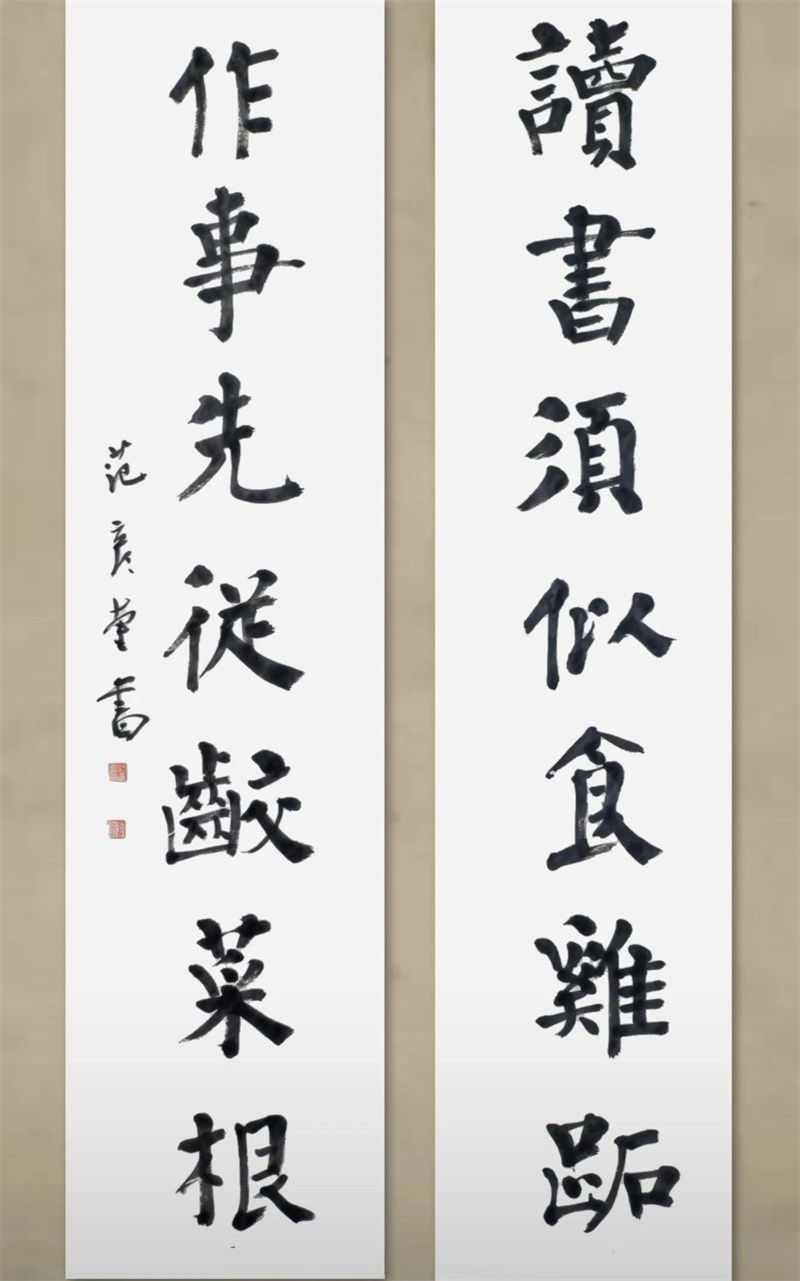 讀書須似食雞跖
作事先從齩菜根
范堂書